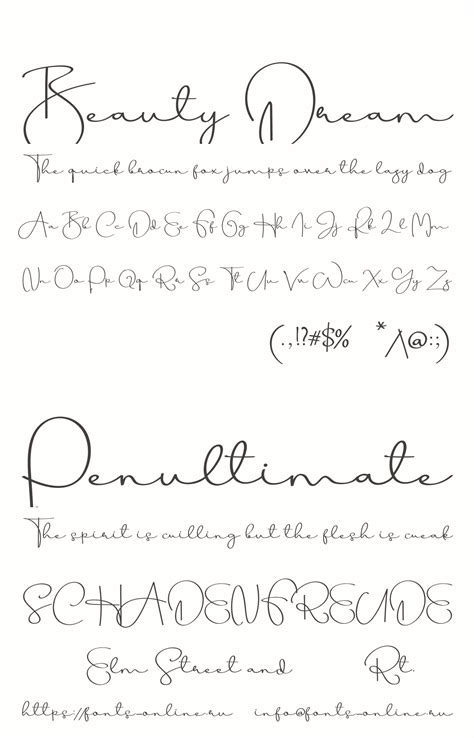 Beauty Dream
The quick brown fox jumps over the lazy dog
Aa Bb Cc Dd Ee Ff Gg Hh Ii Jj Kk Ll Mm
Nn Oo Pp Qq Rr Ss Tt Uu Vv Ww Xx Yy Zz
(.,!?#$% * /\@:;)
Penultimate
The spirit is willing but the flesh is weak
SCHADENFREUDE
Elm Street and Rt.
https://fonts-online.ru info@fonts-online.ru